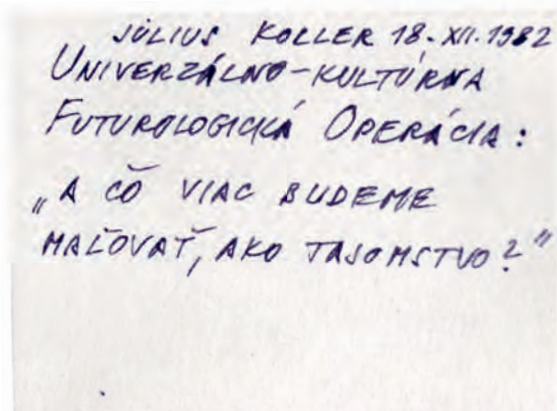 JÚLIUS KOLLER 18.XII.1982
UNIVERZÁLNO-KULTÚRNA
FUTUROLOGICKÁ OPERÁCIA:
„A ČO VIAC BUDEME
MAĽOVAŤ, AKO TAJOMSTVO?"